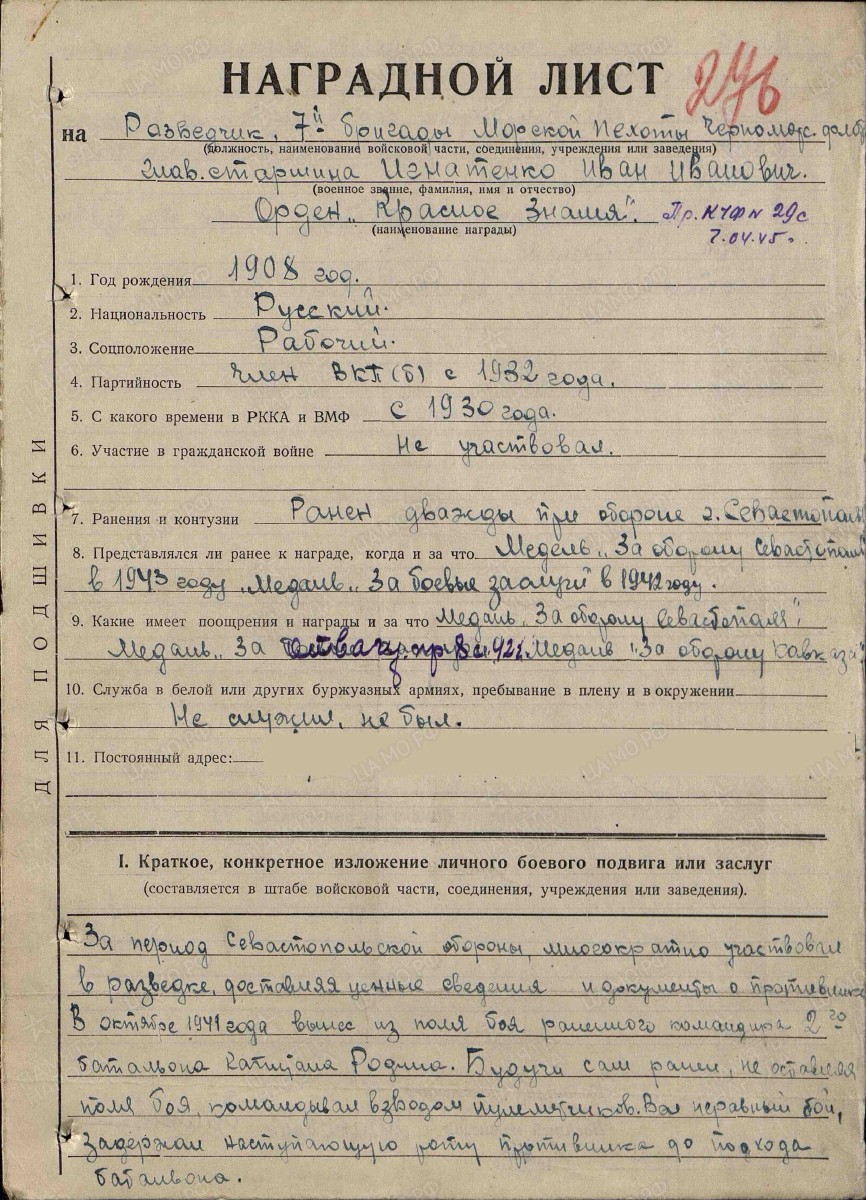 НАГРАДНОЙ ЛИСТ
276
на Разведчик, 7й бригады Морской Пехоты Черноморс. флота
(должность, наименование войсковой части, соединения, учреждения или заведения)
Глав. старшина Игнатенко Иван Иванович.
(военное звание, фамилия, имя и отчество)
Орден „Красное Знамя". Пр. КЧФ № 29с
(наименование награды) 7.04.45.
1. Год рождения 1908 год.
2. Национальность Русский.
3. Соцположение Рабочий.
4. Партийность Член ВКП(б) с 1932 года.
5. С какого времени в РККА и ВМФ с 1930 года.
6. Участие в гражданской войне Не участвовал.
7. Ранения и контузии Ранен дважды при обороне г. Севастополь
8. Представлялся ли ранее к награде, когда и за что Медель „За оборону Севастополя"
в 1943 году, Медаль „За боевые заслуги" в 1942 году.
9. Какие имеет поощрения и награды и за что Медаль „За оборону Севастополя"
Медаль „За Медаль „За оборону Кавказа"
10. Служба в белой или других буржуазных армиях, пребывание в плену и в окружении
Не служил, не был.
11. Постоянный адрес:
ДЛЯ ПОДШИВКИ
I. Краткое, конкретное изложение личного боевого подвига или заслуг
(составляется в штабе войсковой части, соединения, учреждения или заведения).
За период Севастопольской обороны, многократно участвовал
в разведке, доставляя ценные сведения и документы о противнике
В октябре 1941 года вынес из поля боя раненного командира 2го
батальона капитана Родина. Будучи сам ранен, не оставляя
поля боя, командывал взводом пулеметчиков. Вел неравный бой,
задержал наступающую роту противника до подхода
батальона.